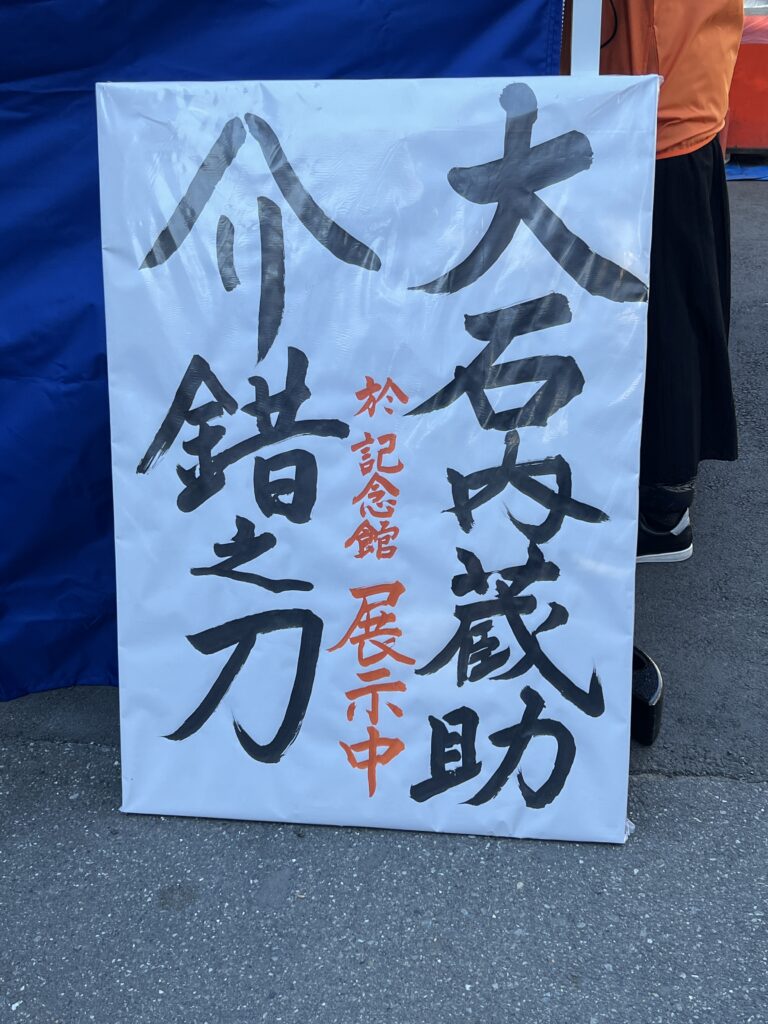 大石内蔵助
介錯之刀
於記念館 展示中